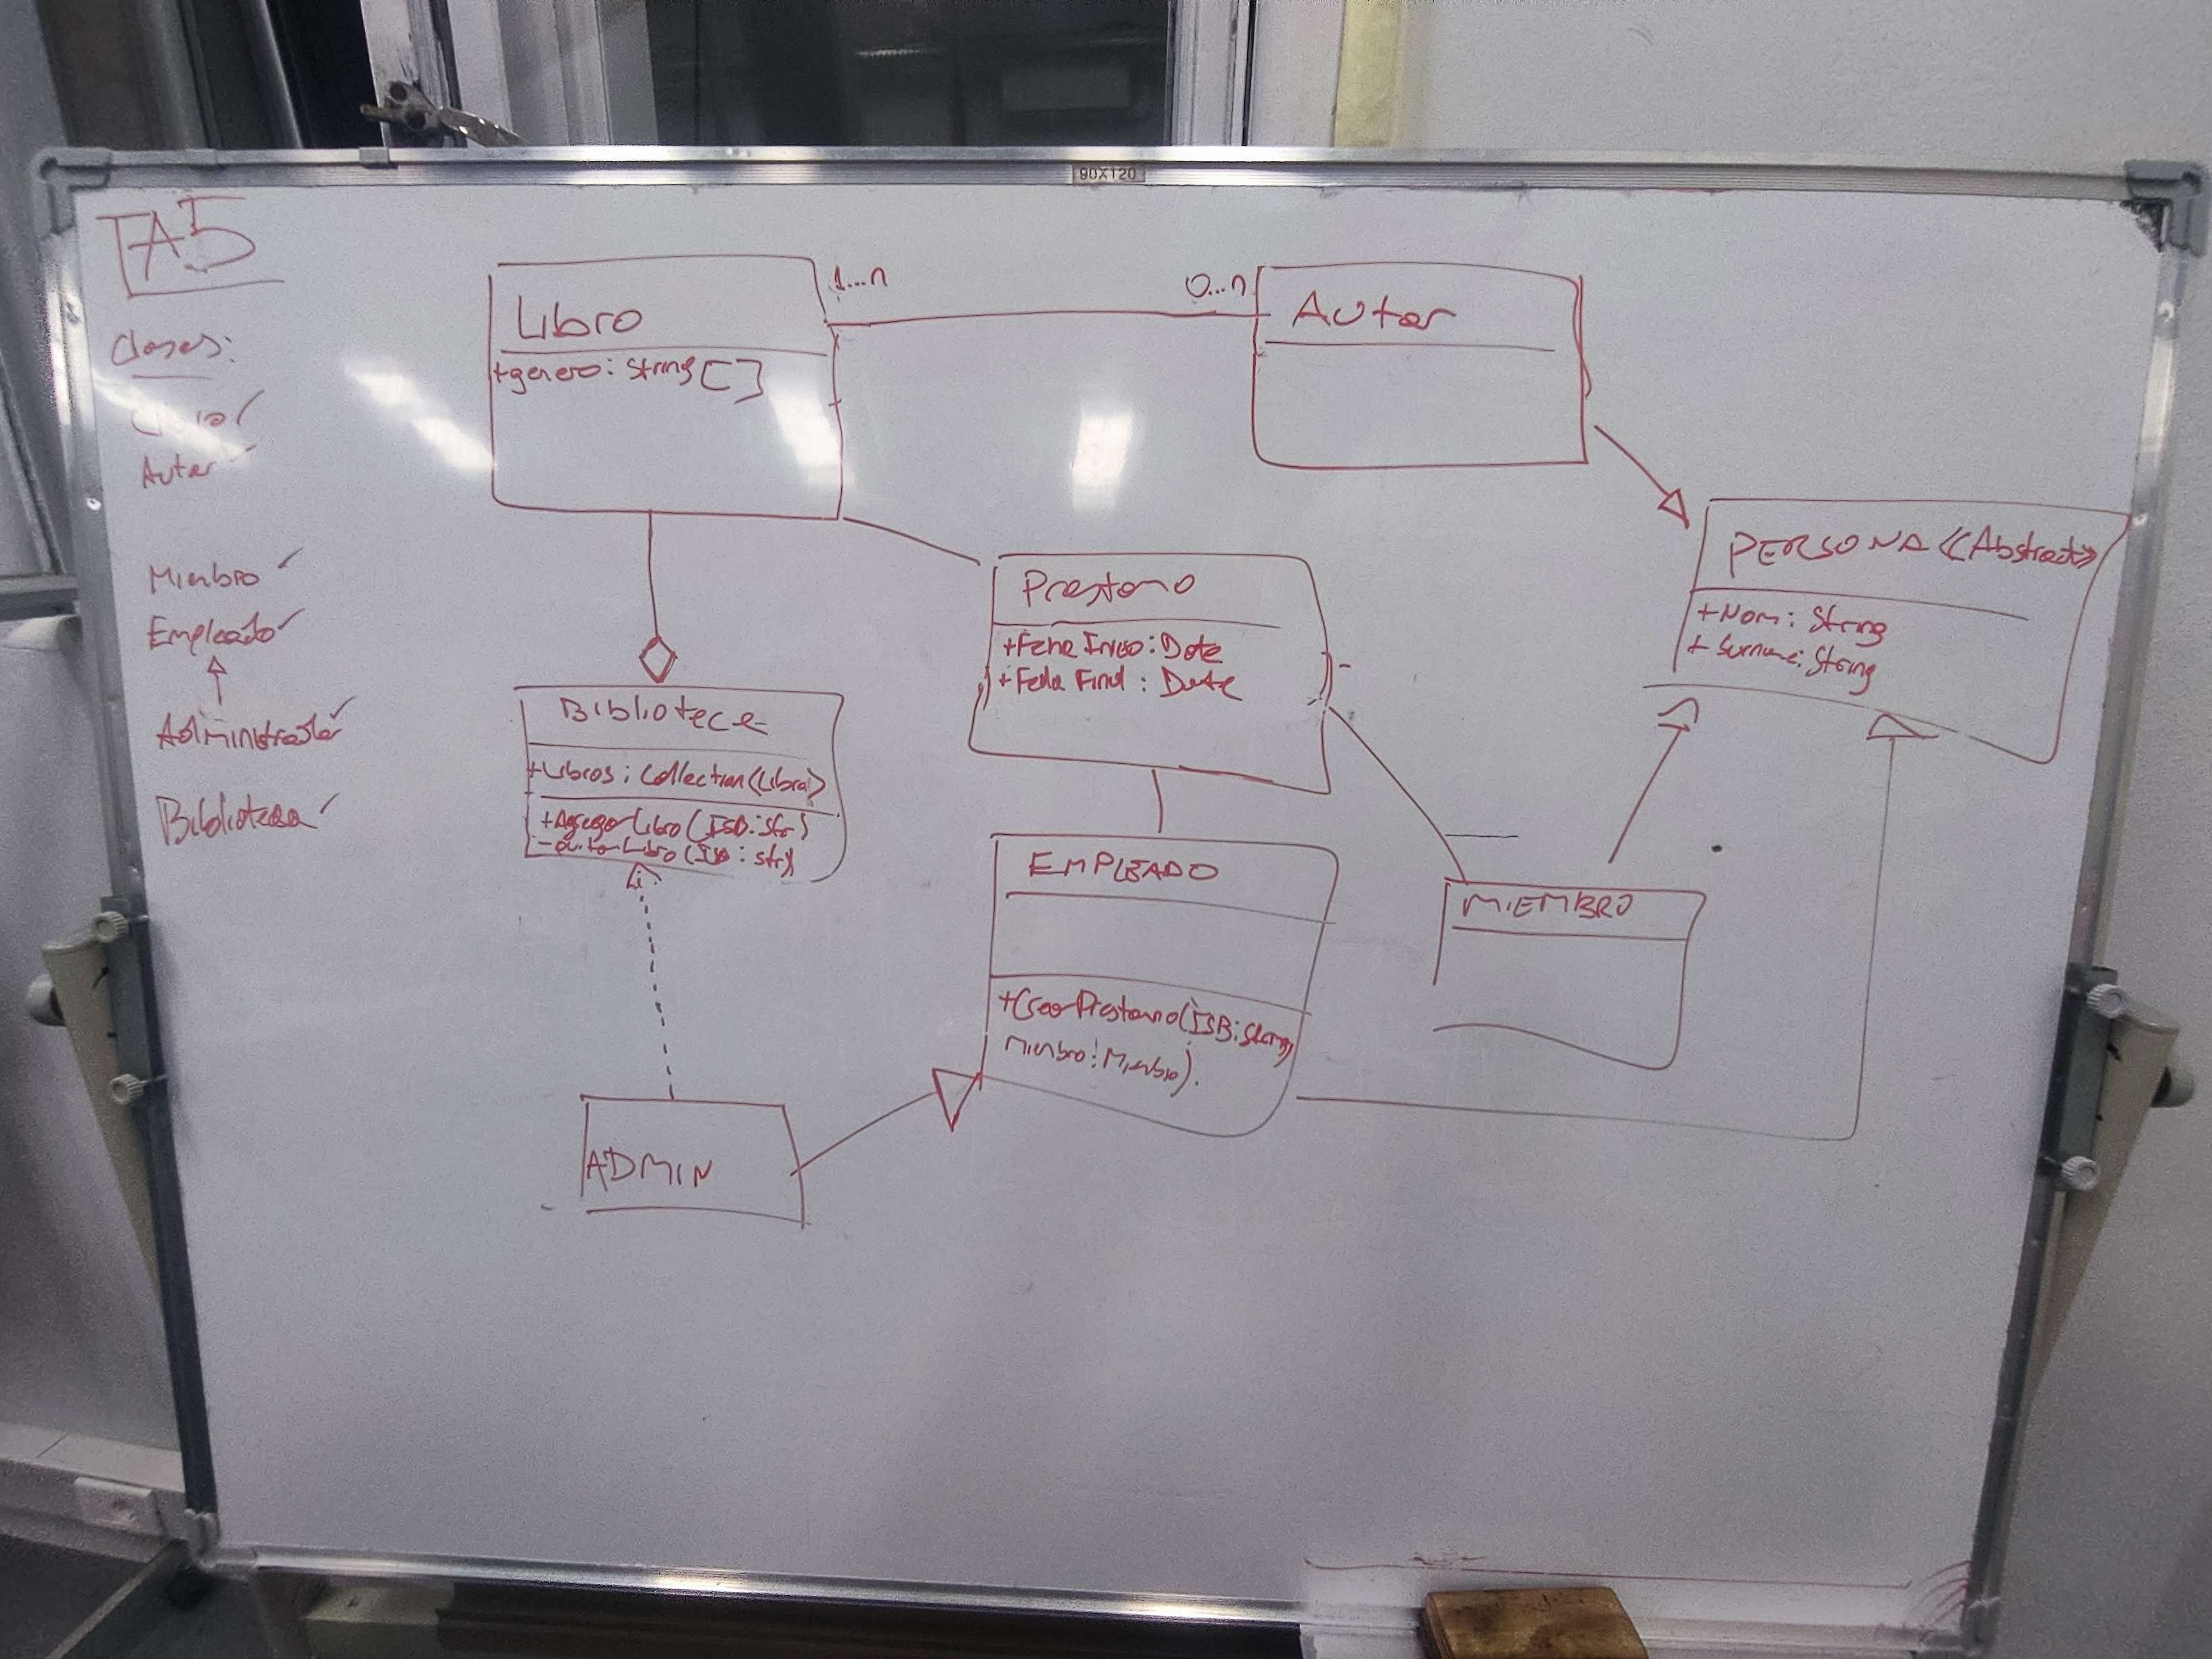 90X120
TA5
Clases:
Libro
Autor
Miembro
Empleado
Administrador
Biblioteca
Libro
+genero: String []
1...n
0...n
Autor
PERSONA <<Abstract>>
+Nom: String
+ Surname: String
Prestamo
+Fecha Inicio: Date
+Fecha Final: Date
Biblioteca
+Libros: Collection<Libro>
+AgregarLibro(ISB:str)
-QuitarLibro(ISB: str)
EMPLEADO
+CrearPrestamo(ISB:String,
miembro:Miembro).
MIEMBRO
ADMIN